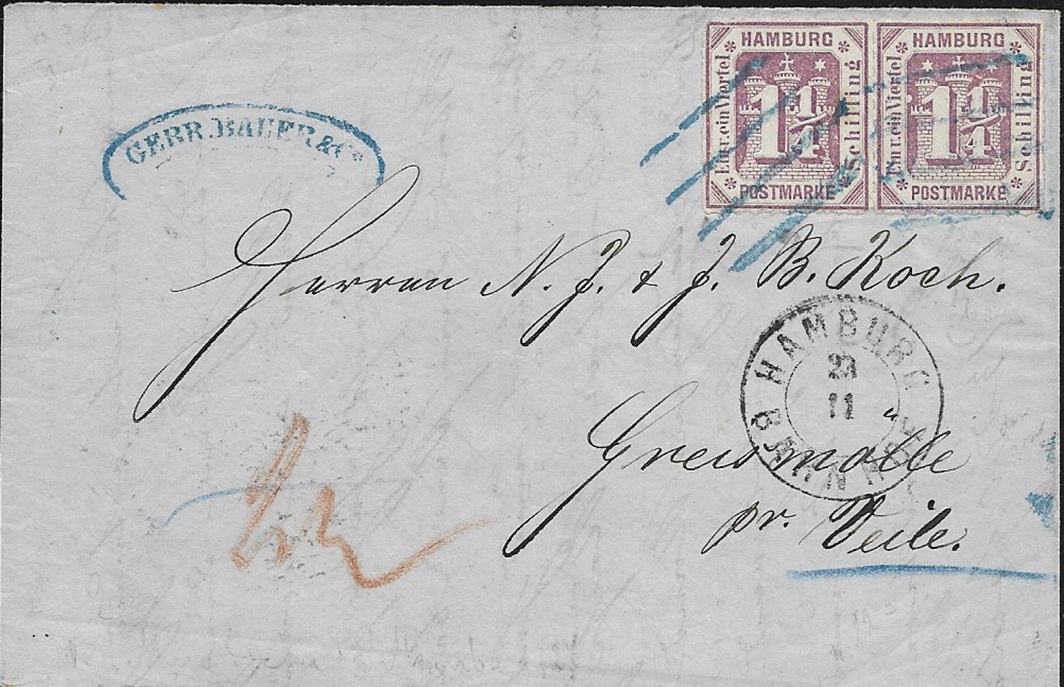 GEBR. BAUER & Co
HAMBURG
Ein u. ein Viertel
1 1/4
Schilling
POSTMARKE
HAMBURG
Ein u. ein Viertel
1 1/4
Schilling
POSTMARKE
Herren N. J. & J. B. Koch.
HAMBURG
23
11
BAHNHOF
pr. Veile.